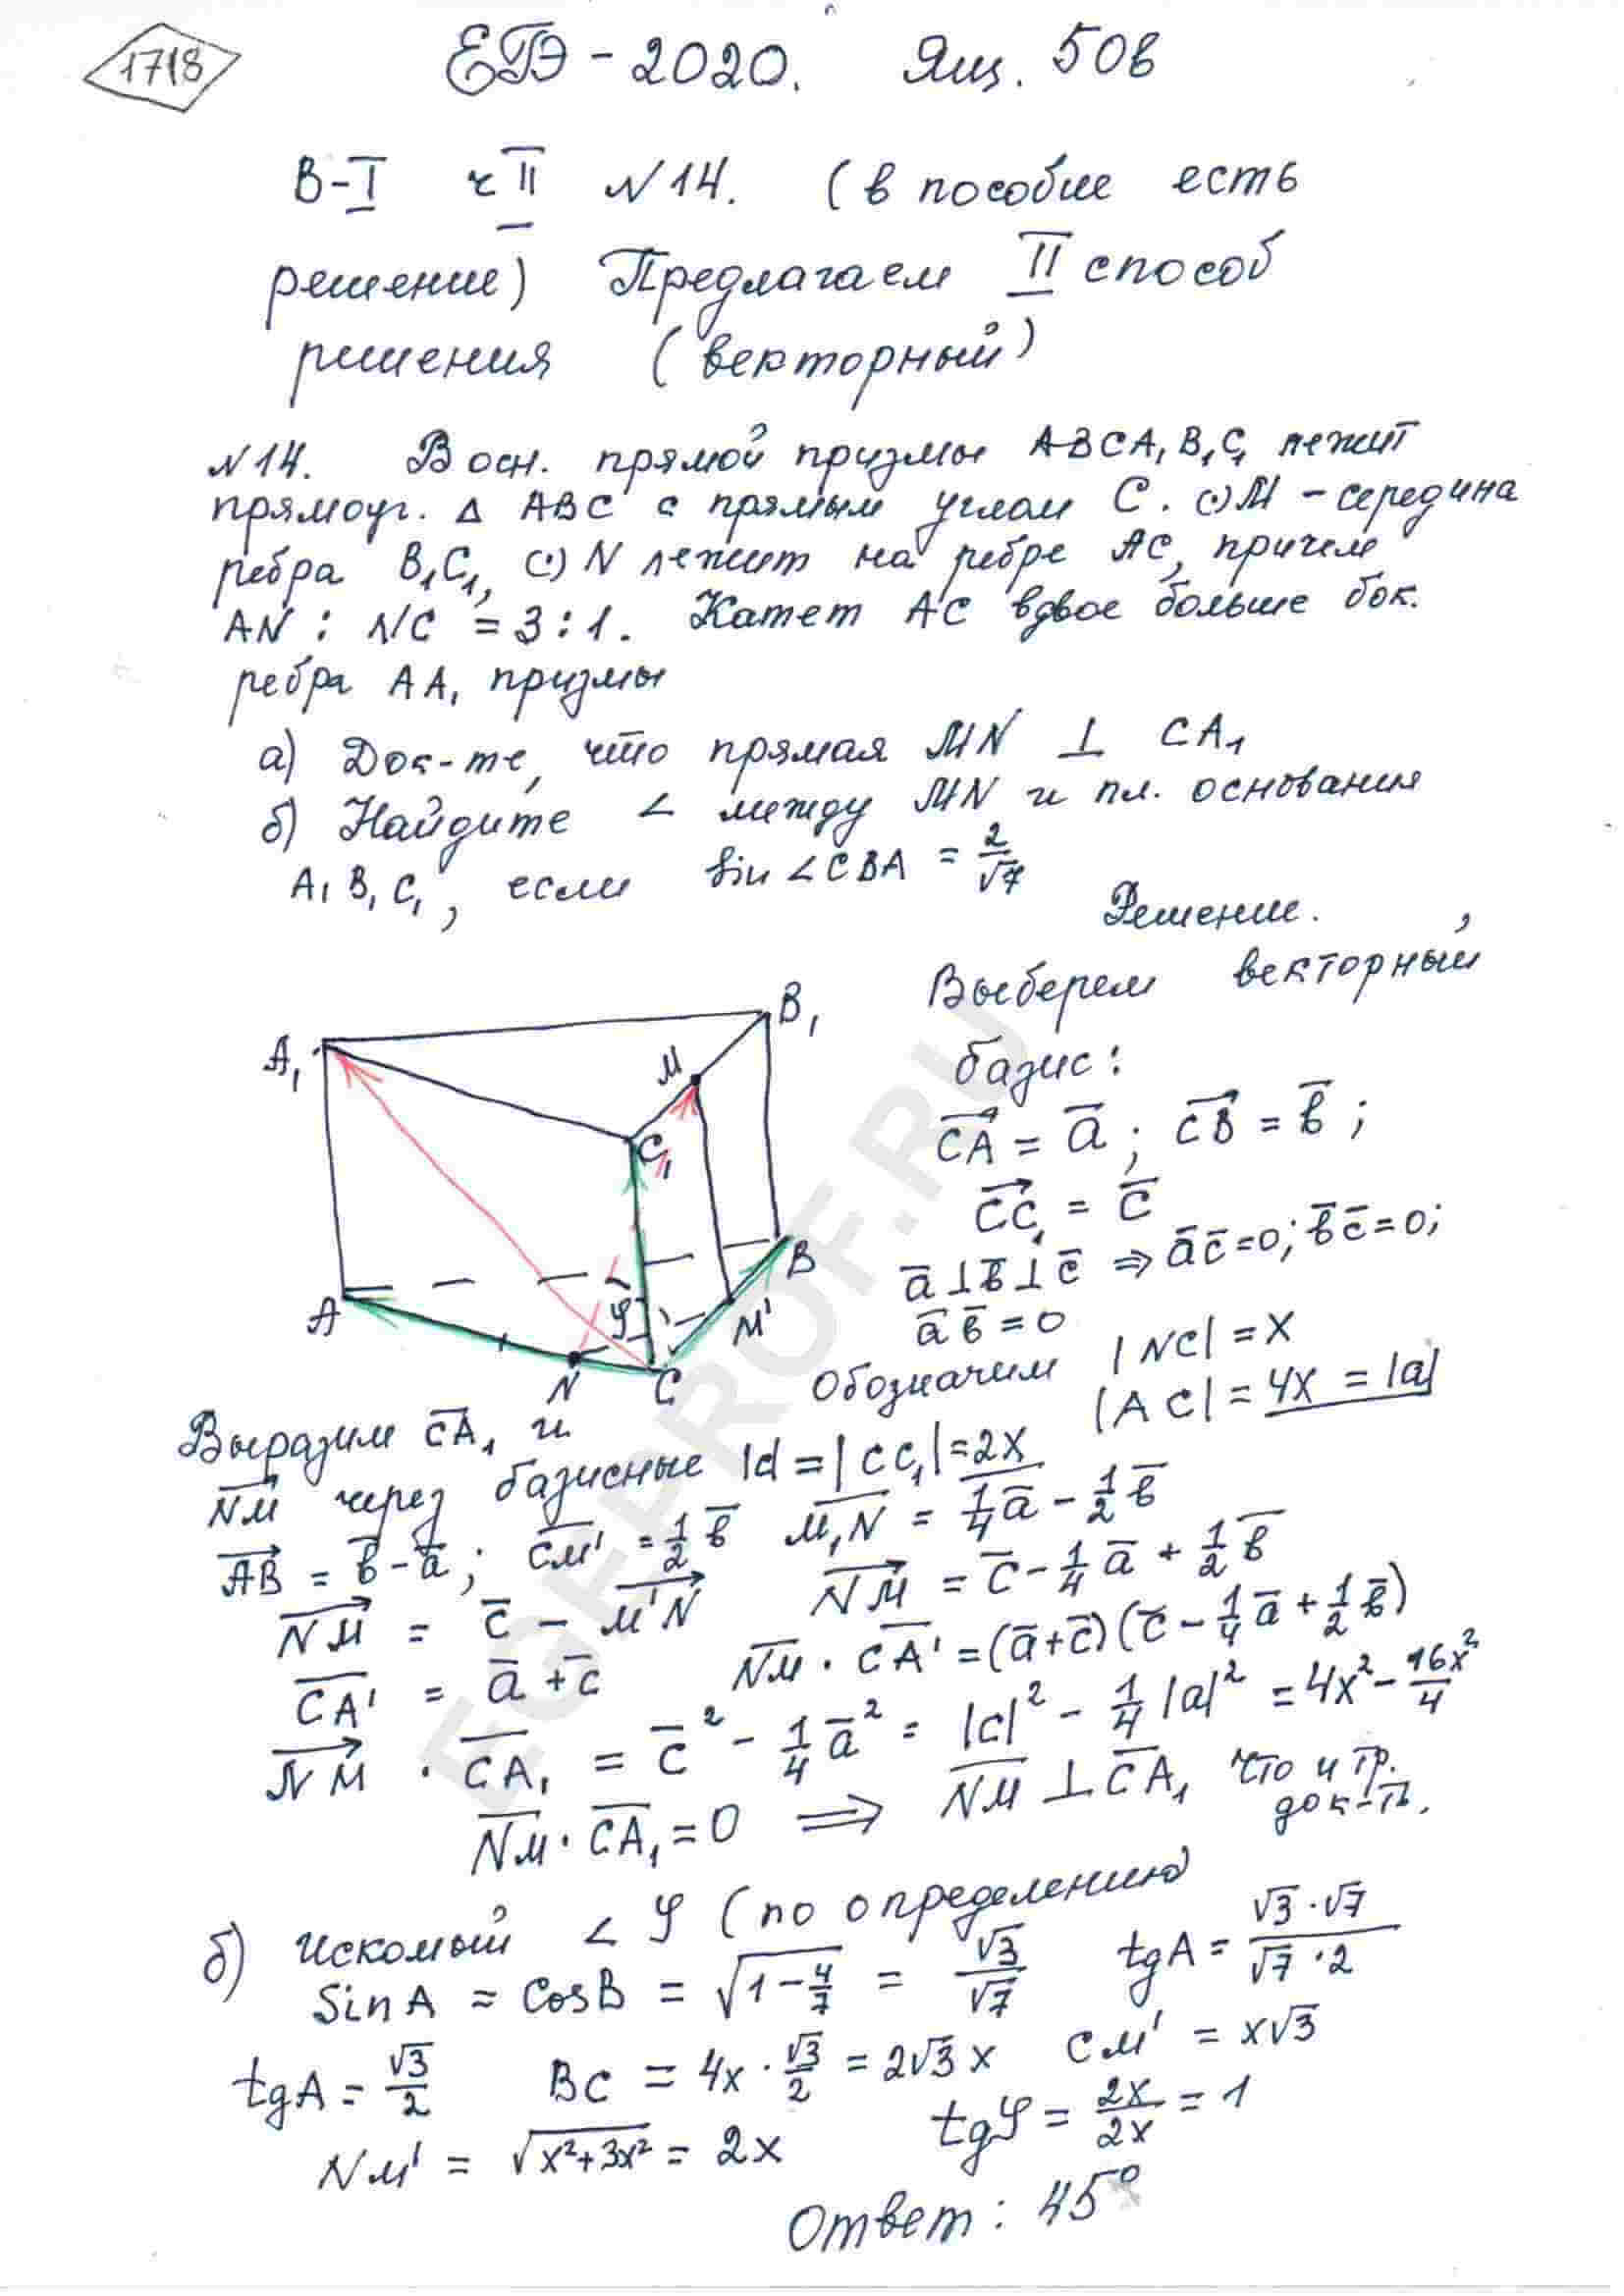 1718
ЕГЭ - 2020. Ящ. 50в
В-I ч II N14. (в пособие есть
решение) Предлагаем II способ
решения (векторный)
N14. В осн. прямой призмы ABCA₁B₁C₁ лежит
прямоуг. Δ ABC с прямым углом C. (·) M - середина
ребра B₁C₁, (·) N лежит на ребре AC, причем
AN : NC = 3 : 1. Катет AC вдвое больше бок.
ребра AA₁ призмы
а) Док-те, что прямая MN ⊥ CA₁
б) Найдите ∠ между MN и пл. основания
A₁B₁C₁, если sin∠CBA = 2/√7
Решение.
Выберем векторный
базис:
CA = a; CB = b;
CC₁ = c
a⊥b⊥c ⇒ ac=0; bc=0;
ab=0
A₁
B₁
M
C₁
A
φ
B
M'
N
C
Обозначим |NC| = x
|AC| = 4x = |a|
Выразим CA₁ и
NM через базисные |c| = |CC₁| = 2x
AB = b - a; CM' = 1/2 b M₁N = 1/4 a - 1/2 b
NM = c - M'N NM = c - 1/4 a + 1/2 b
CA' = a + c NM · CA' = (a+c)(c - 1/4 a + 1/2 b)
NM · CA₁ = c² - 1/4 a² = |c|² - 1/4 |a|² = 4x² - 16x²/4
NM · CA₁ = 0 ⇒ NM ⊥ CA₁ что и тр.
док-ть.
б) Искомый ∠ φ (по определению
Sin A = Cos B = √(1 - 4/7) = √3/√7 tgA = √3·√7/√7·2
tgA = √3/2 BC = 4x · √3/2 = 2√3 x CM' = x√3
NM' = √(x²+3x²) = 2x tgφ = 2x/2x = 1
Ответ: 45°
EGEPROF.RU